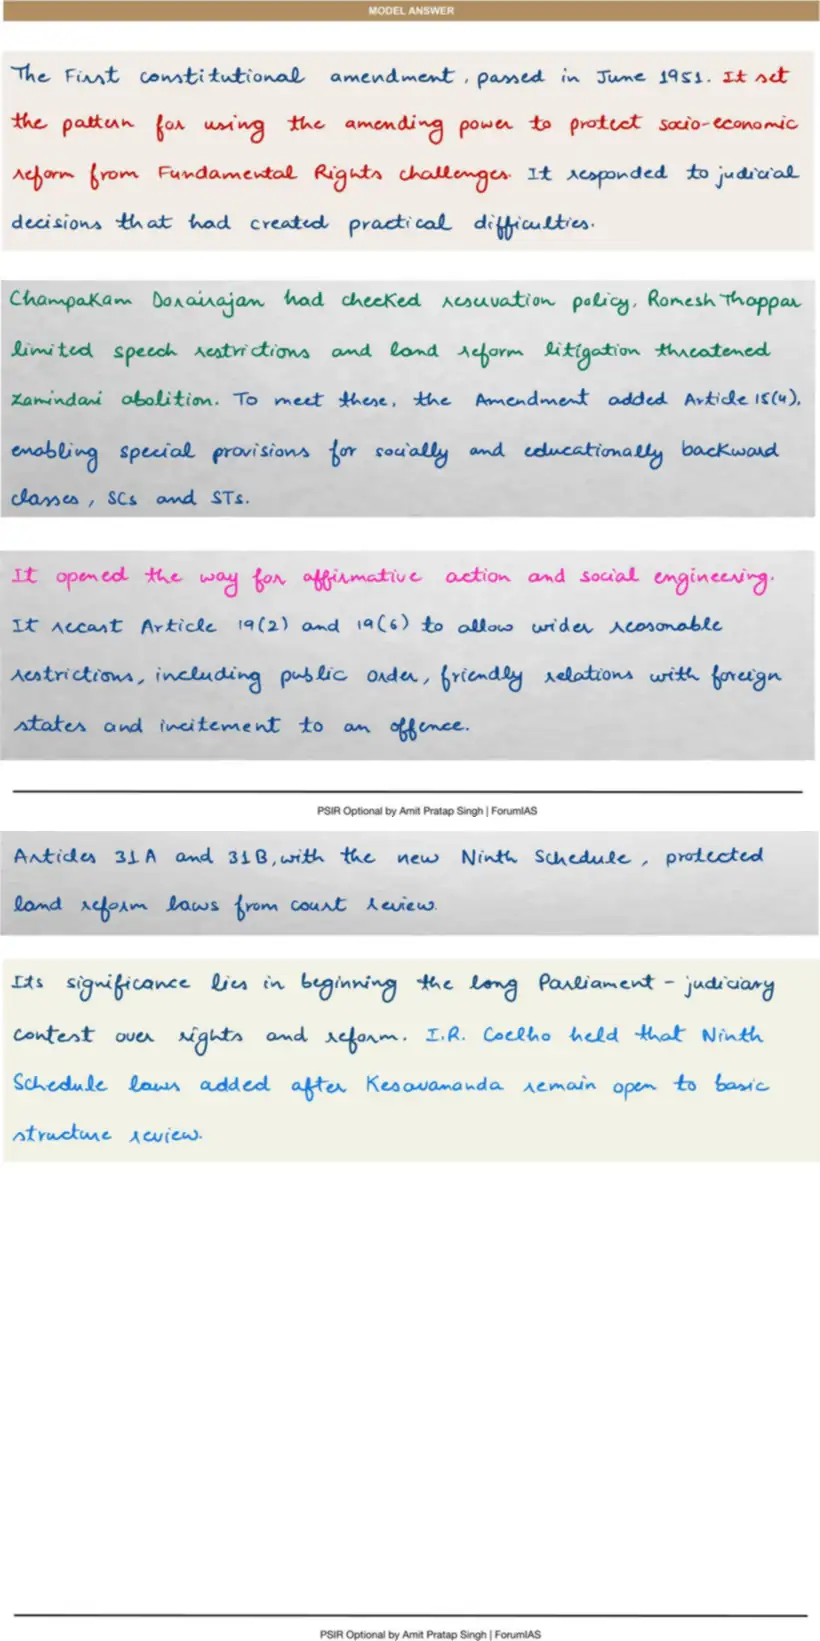 MODEL ANSWER
The First constitutional amendment, passed in June 1951. It set
the pattern for using the amending power to protect socio-economic
reform from Fundamental Rights challenges. It responded to judicial
decisions that had created practical difficulties.
Champakam Dorairajan had checked reservation policy, Romesh Thappar
limited speech restrictions and land reform litigation threatened
zamindari abolition. To meet these, the Amendment added Article 15(4),
enabling special provisions for socially and educationally backward
classes, SCs and STs.
It opened the way for affirmative action and social engineering.
It recast Article 19(2) and 19(6) to allow wider reasonable
restrictions, including public order, friendly relations with foreign
states and incitement to an offence.
PSIR Optional by Amit Pratap Singh | ForumIAS
Articles 31A and 31B, with the new Ninth Schedule, protected
land reform laws from court review.
Its significance lies in beginning the long Parliament - judiciary
contest over rights and reform. I.R. Coelho held that Ninth
Schedule laws added after Kesavananda remain open to basic
structure review.
PSIR Optional by Amit Pratap Singh | ForumIAS